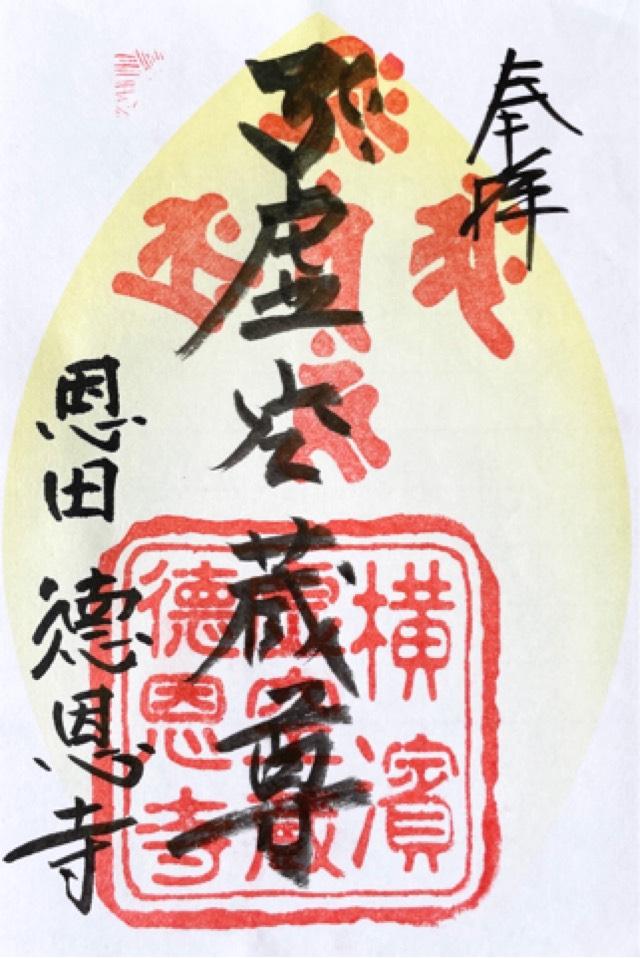 奉拝
虚空蔵尊
恩田 徳恩寺
横濱
虚空蔵
徳恩寺